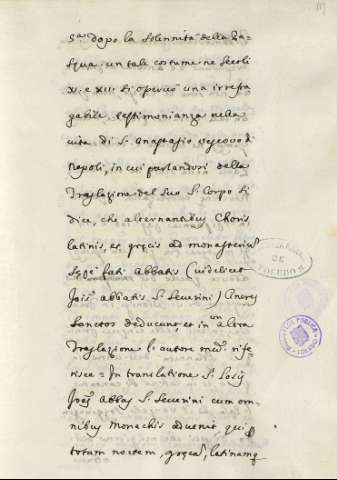 5.ª dopo la solennita della Pa-
squa. un tale costume ne secoli
X. e XII. si osservò una irrefra
gabile testimonianza nella
vita di S. Anastasio vescovo di
Napoli, in cui parlandosi della
Traslazione del Suo S. Corpo si
dice, che alternantibus Choris
latinis, et grecis ad monasterium
fati Abbatis (videlicet
Abbatis S. Severini)
Sanctos deducunt, et in un altra
Traslazione l'autore rife-
risce = In translatione S. Sosij
Abbas S. Severini cum om-
nibus Monachis advenit, qui
totam noctem, grecam, latinamq
DE
TOLEDO